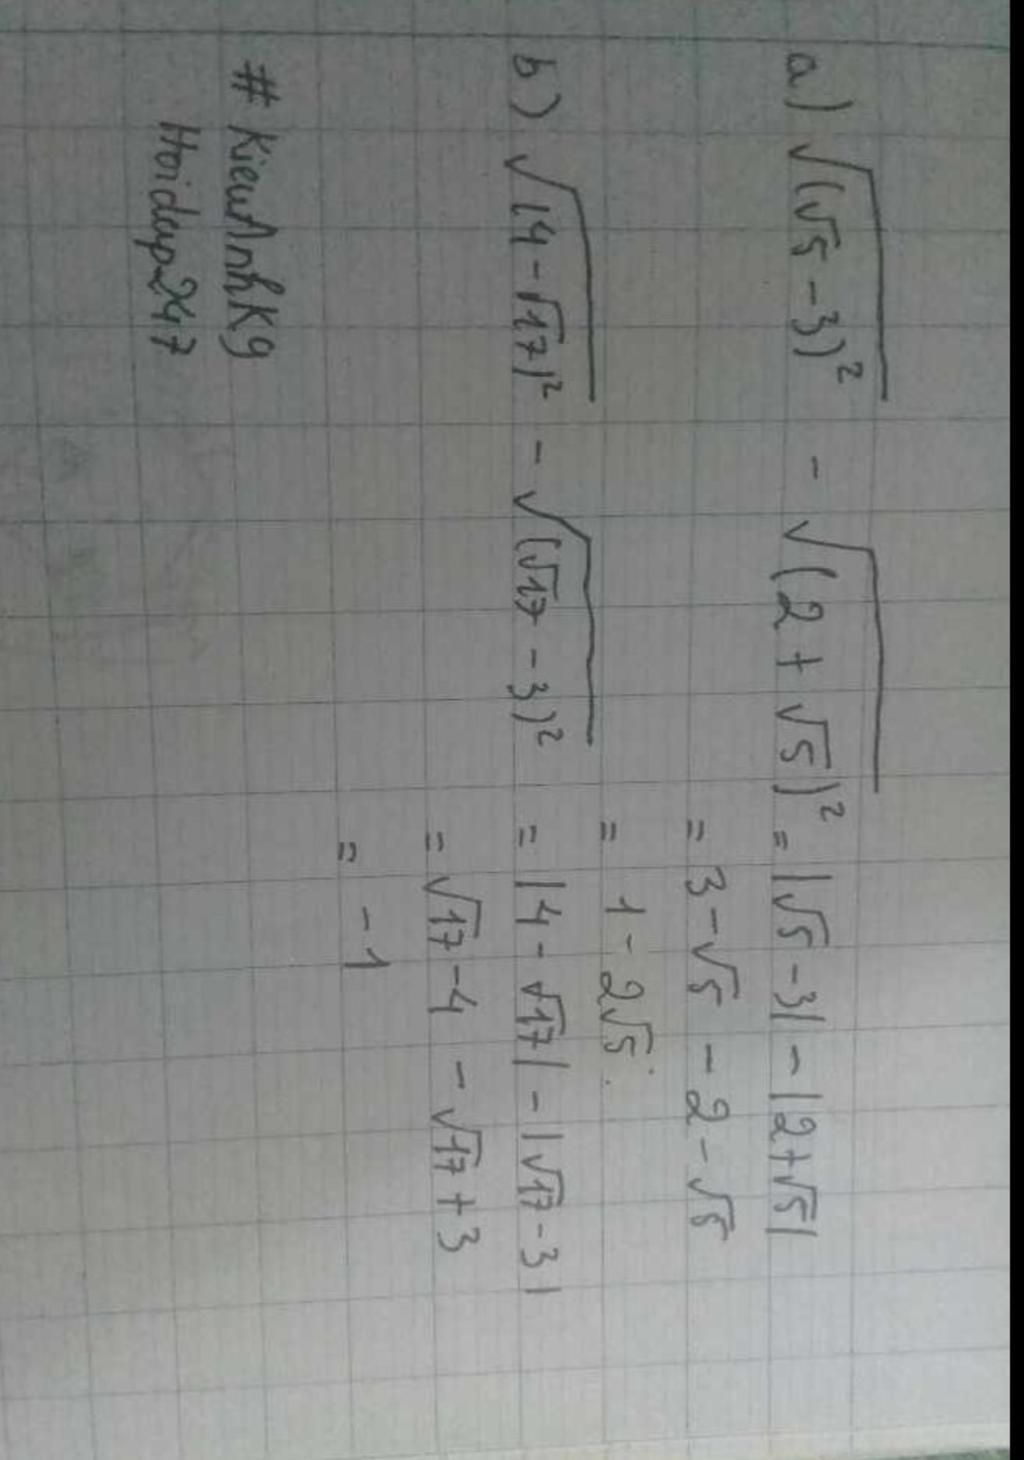 a) √(√5 - 3)² - √(2 + √5)² = |√5 - 3| - |2+√5|
= 3 - √5 - 2 - √5
= 1 - 2√5.
b) √(4 - √17)² - √(√17 - 3)² = |4 - √17| - |√17 - 3|
= √17 - 4 - √17 + 3
= -1
# KieuAnhK9
Hoidap247